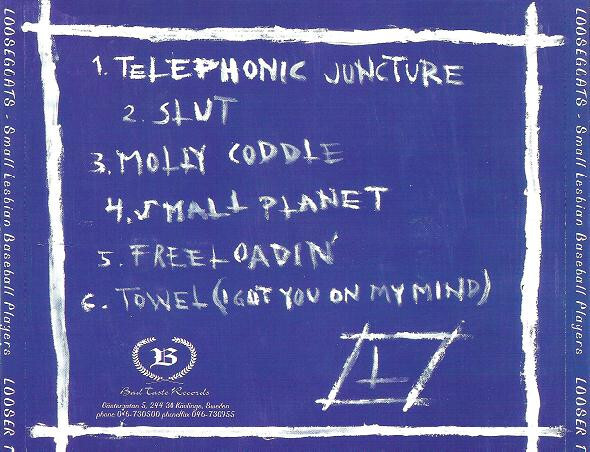 LOOSEGOATS - Small Lesbian Baseball Players LOOSER T
1. TELEPHONIC JUNCTURE
2. SLUT
3. MOLLY CODDLE
4. SMALL PLANET
5. FREELOADIN'
6. TOWEL (I GOT YOU ON MY MIND)
B
Bad Taste Records
244 34 Kävlinge, Sweden
phone 046-730500 phone/fax 046-730955
L
LOOSEGOATS - Small Lesbian Baseball Players LOOSER T